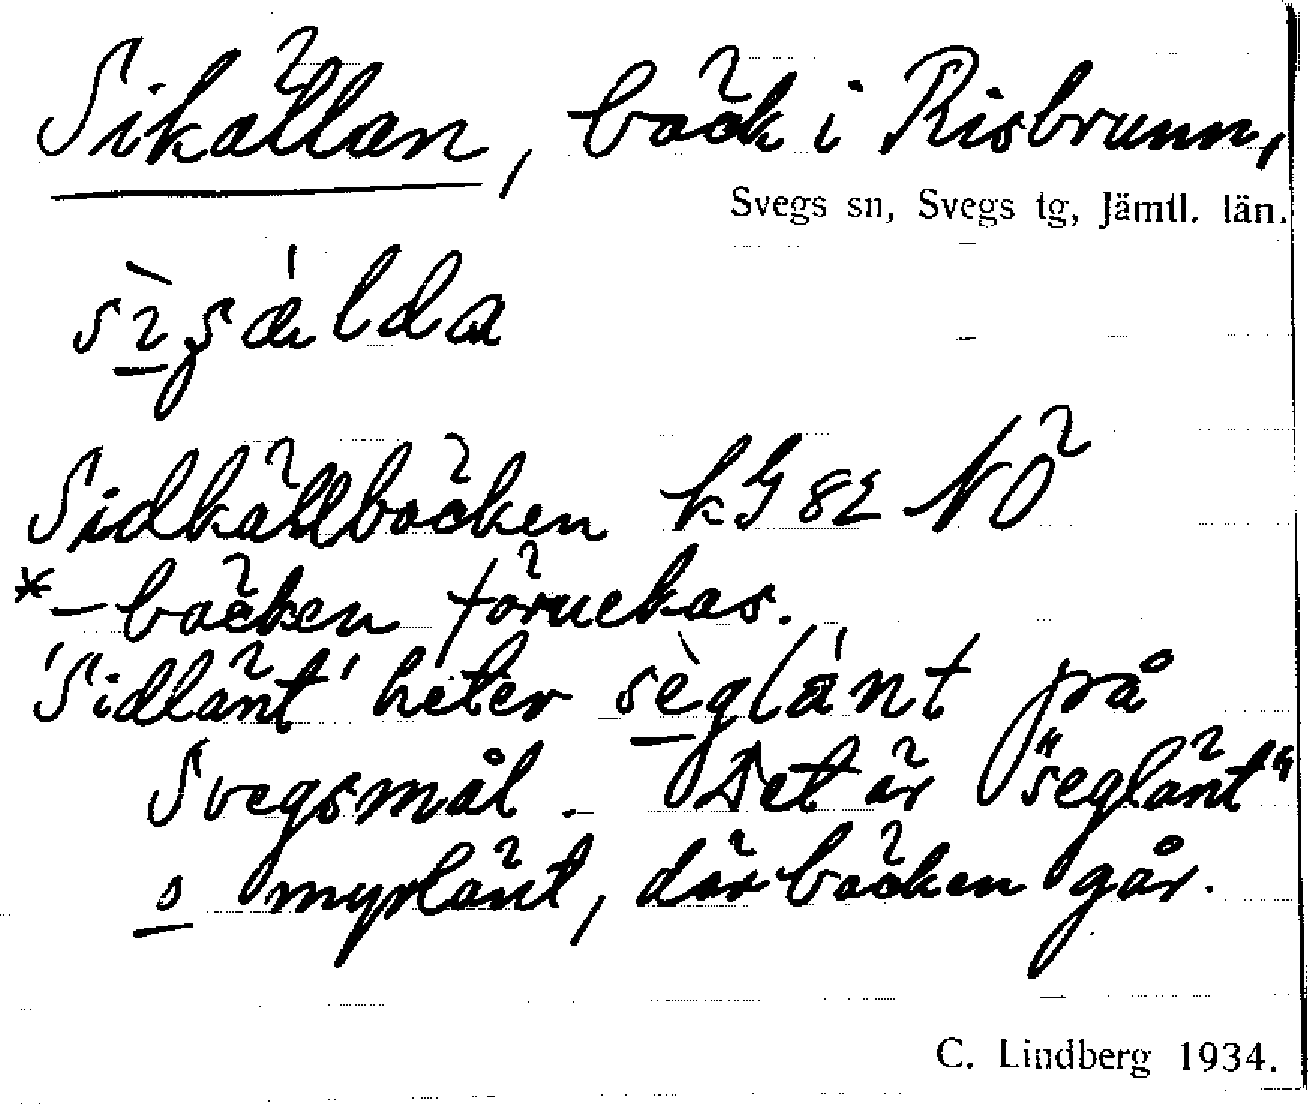 Sikällan, bäck i Risbrunn,
Svegs sn, Svegs tg, Jämtl. län.
Sidkällbäcken kG 82 NÖ
*–bäcken föruckas.
'Sidlänt' heter sèglánt på
Svegsmål. Det är "seglänt"
o myrlänt, där bäcken går.
C. Lindberg 1934.